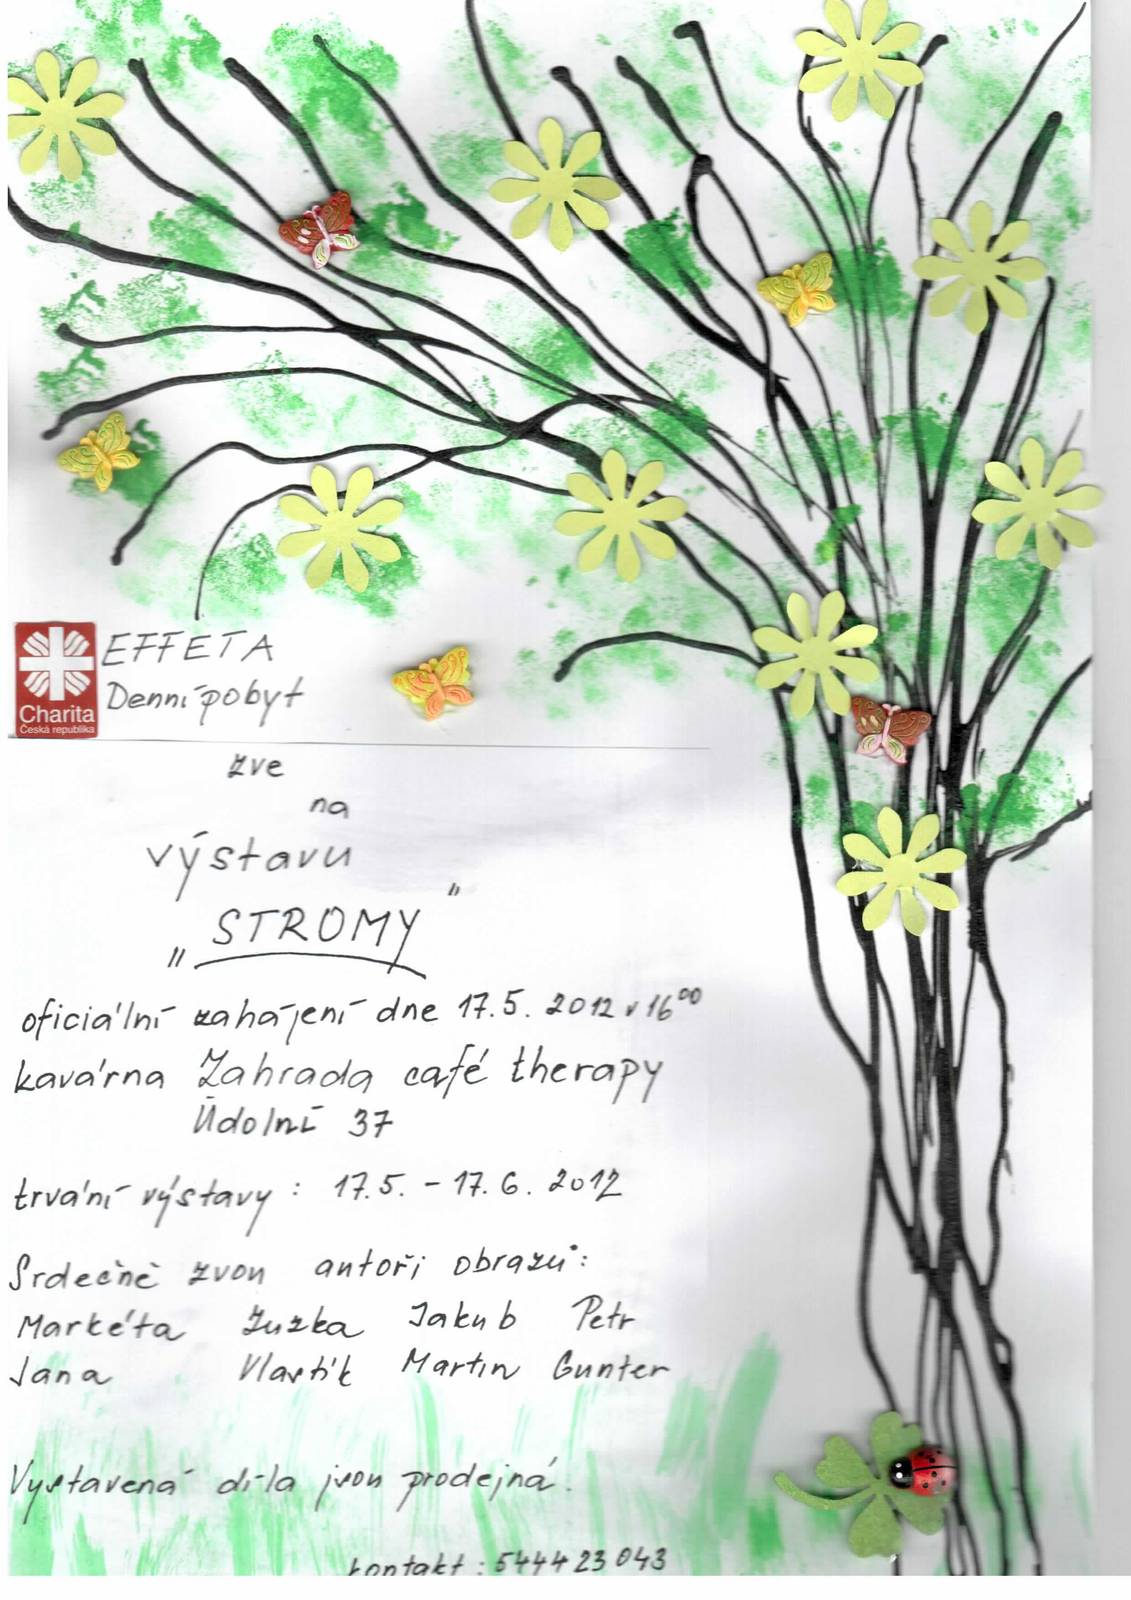 EFFETA
Denní pobyt
Charita
Česká republika
zve
na
výstavu
„STROMY"
oficiální zahájení dne 17.5. 2012 v 16⁰⁰
kavárna Zahrada café therapy
Údolní 37
trvání výstavy: 17.5. – 17.6. 2012
Srdečně zvou autoři obrazů:
Markéta Zuzka Jakub Petr
Jana Vlastík Martin Gunter
Vystavená díla jsou prodejná.
kontakt: 544423043